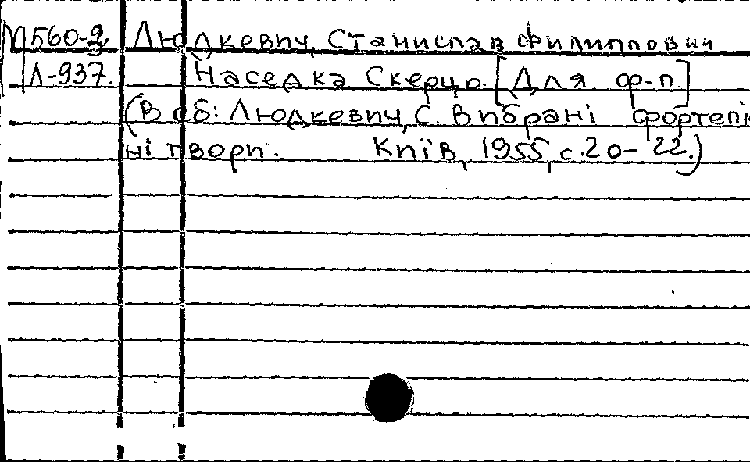 М560-2 Людкевич, Станислав Филиппович
Л-937. Наседка Скерцо. [Для ф-п]
(В сб: Людкевич, С. Вибрані фортепі
ні твори. Київ, 1955, с.20-22.)